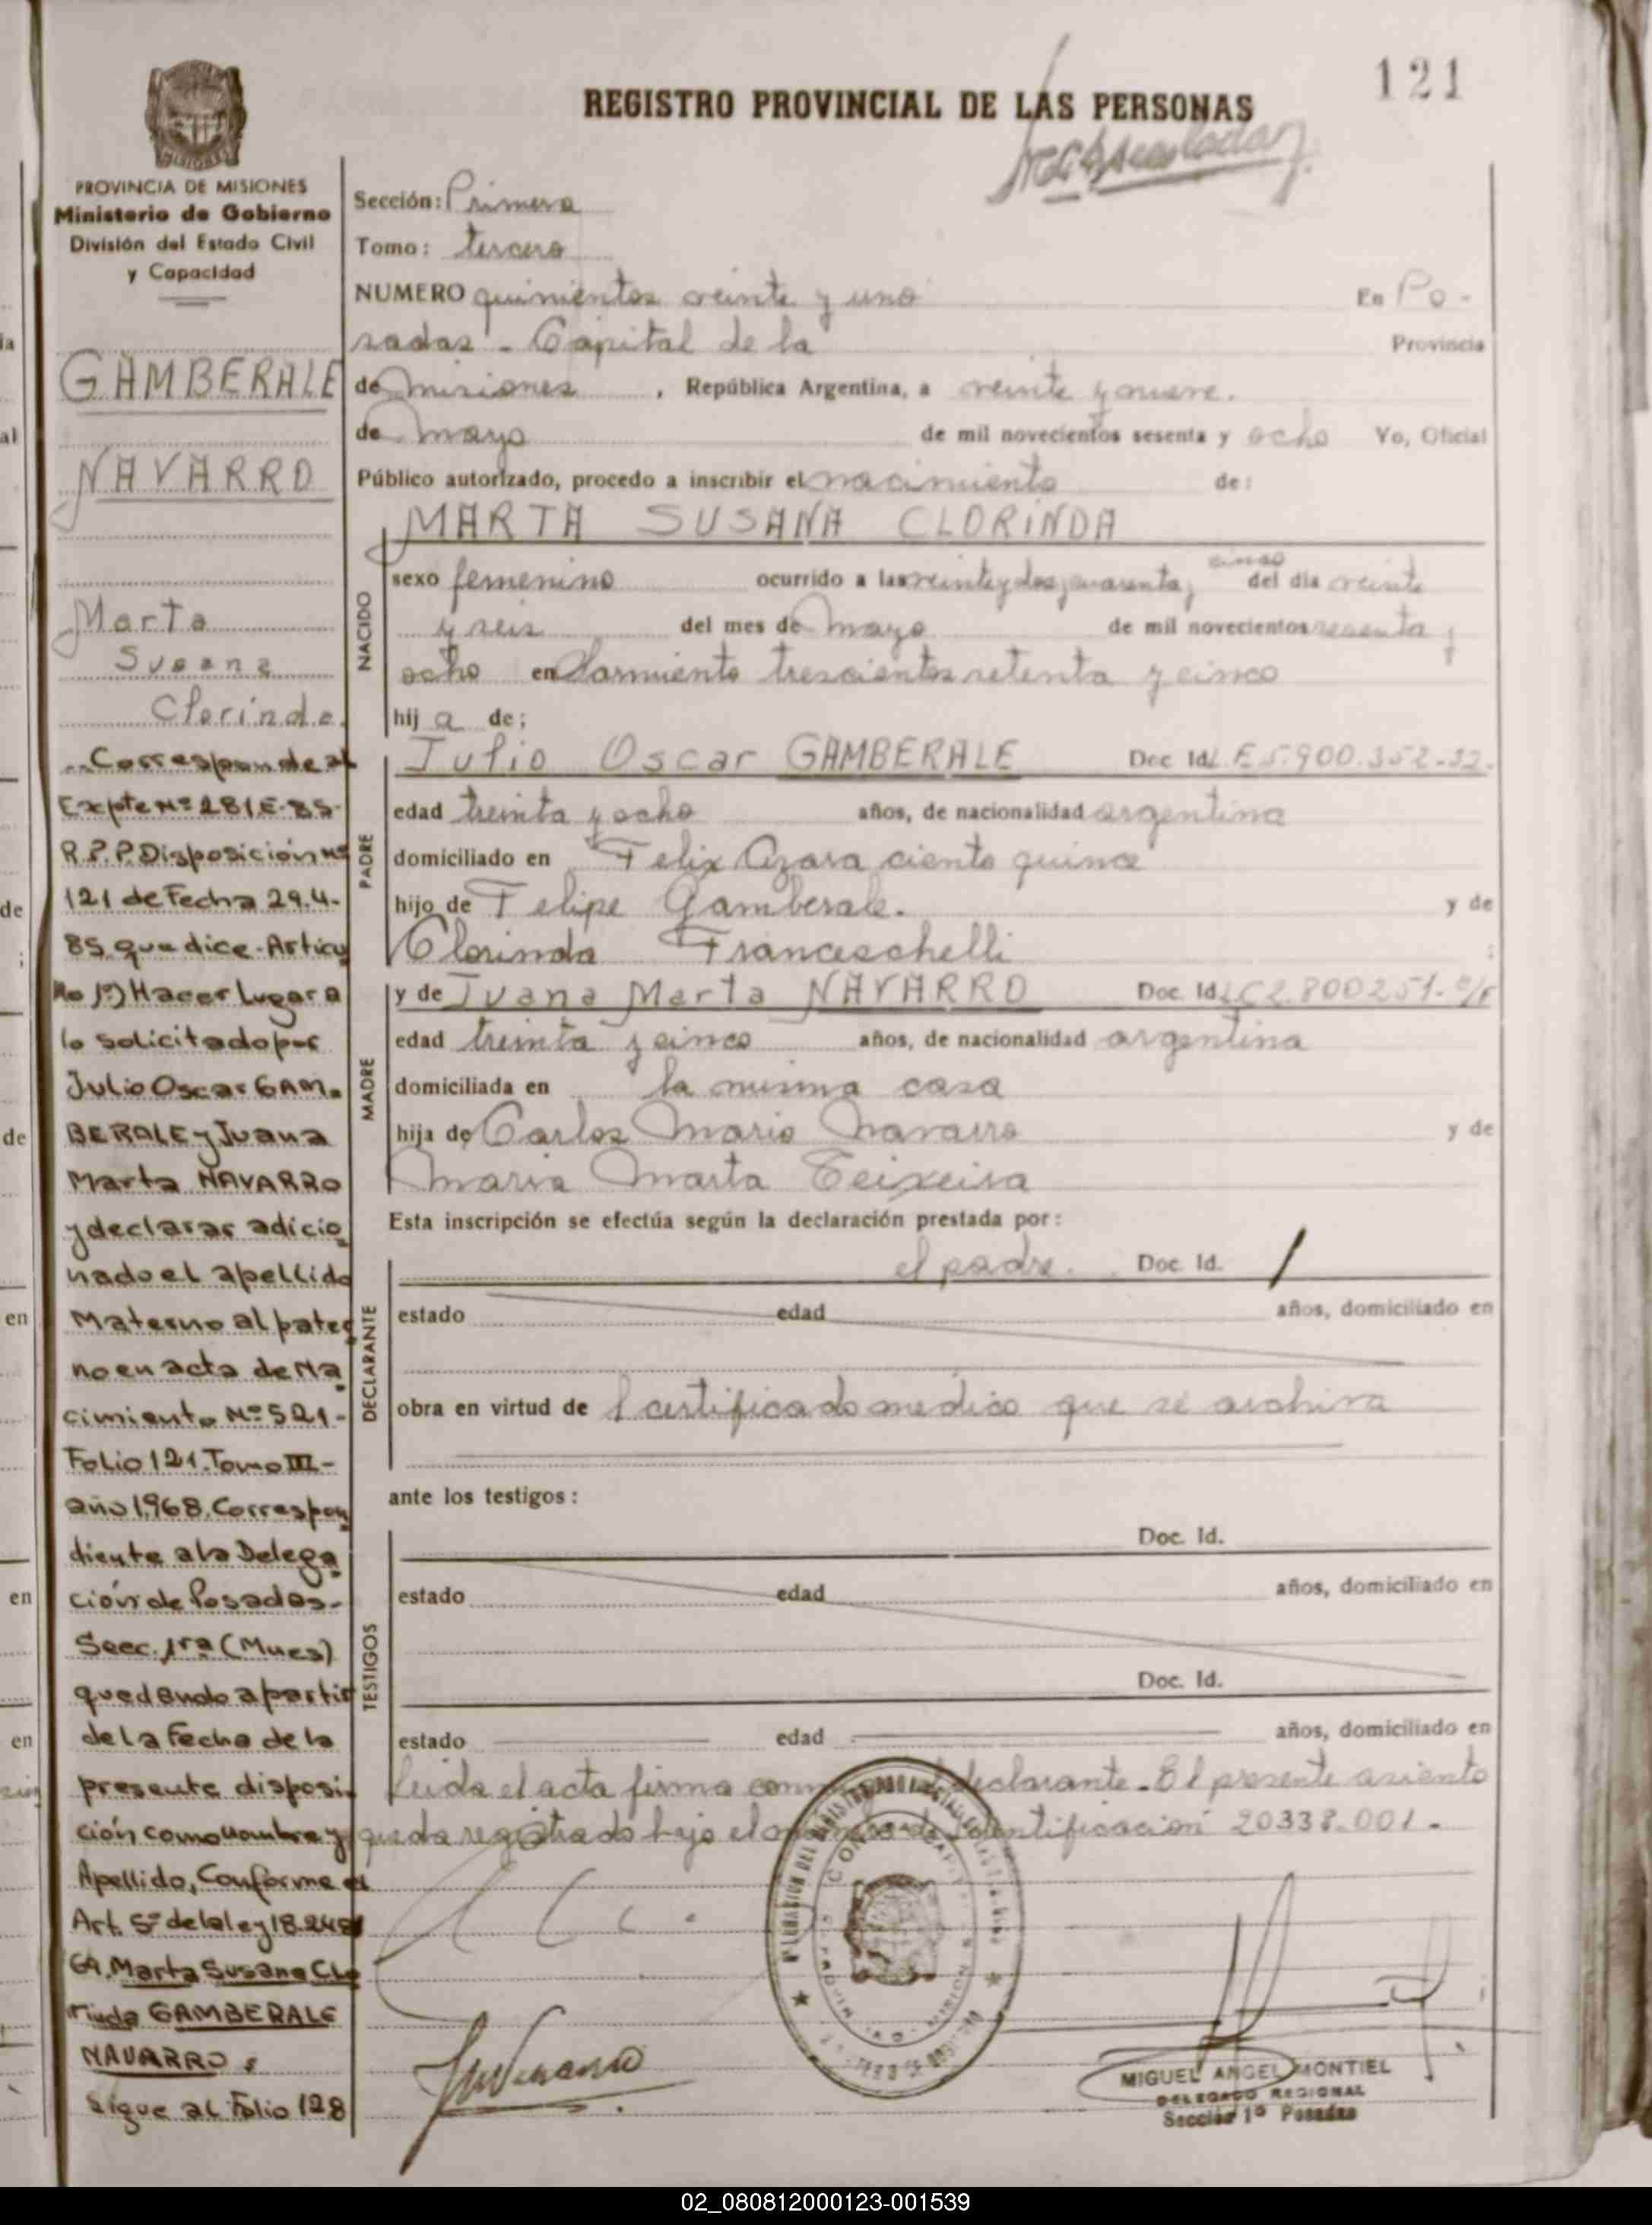 121
REGISTRO PROVINCIAL DE LAS PERSONAS
MISIONES
PROVINCIA DE MISIONES
Ministerio de Gobierno
División del Estado Civil
y Capacidad
GAMBERALE
NAVARRO
Marta
Susana
Clorinda.
Corresponde al
Expte Nº 281E-85-
R.P.P. Disposición Nº
121 de Fecha 29.4-
85 que dice-Articu
lo 1º) Hacer lugar a
lo solicitado por
Julio Oscar GAM-
BERALE y Juana
Marta NAVARRO
y declarar adicio
nado el apellido
Materno al pater
no en acta de Na
cimiento Nº 521-
Folio 121. Tomo III-
año 1968. Correspon
diente a la Delega
ción de Posadas-
Secc. 1ra (Mnes)
quedando a partir
de la Fecha de la
presente disposi
ción como nombre y
Apellido, Conforme el
Art. 5º de la ley 18.248/
69. Marta Susana Clo
rinda GAMBERALE
NAVARRO.
Sigue al Folio 128
Sección: Primera
Tomo: tercero
NUMERO quinientos veinte y uno En Po-
sadas - Capital de la Provincia
de Misiones , República Argentina, a veinte y nueve.
de Mayo de mil novecientos sesenta y ocho Yo, Oficial
Público autorizado, procedo a inscribir el nacimiento de:
MARTA SUSANA CLORINDA
NACIDO
cinco
sexo femenino ocurrido a las veinte y dos, cuarenta y del día veinte
y seis del mes de Mayo de mil novecientos sesenta y
ocho en Sarmiento trescientos setenta y cinco
hij a de:
PADRE
Julio Oscar GAMBERALE Doc. Id. L.E 5.900.352-
edad treinta y ocho años, de nacionalidad argentina
domiciliado en Felix Azara ciento quince
hijo de Felipe Gamberale. y de
Clorinda Franceschelli ;
MADRE
y de Juana Marta NAVARRO Doc. Id. LC 2.800251-
edad treinta y cinco años, de nacionalidad argentina
domiciliada en la misma casa
hija de Carlos Mario Navarro y de
Maria Marta Teixeira
Esta inscripción se efectúa según la declaración prestada por:
DECLARANTE
el padre. Doc. Id. /
estado edad años, domiciliado en
obra en virtud de l certificado medico que se archiva
ante los testigos:
TESTIGOS
Doc. Id.
estado edad años, domiciliado en
Doc. Id.
estado edad años, domiciliado en
Leida el acta firma declarante. El presente asiento
queda registrado bajo el de identificación 20338-001.
MIGUEL ANGEL MONTIEL
DELEGADO REGIONAL
Sección 1º Posadas
02_080812000123-001539